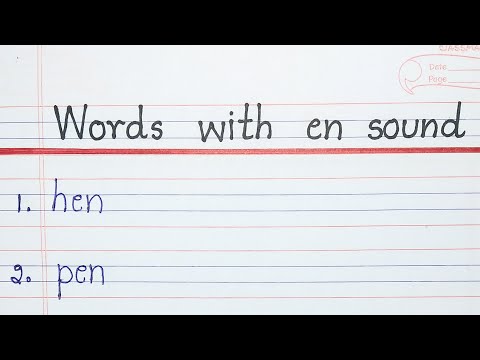 Date
Page
Words with en sound
1. hen
2. pen